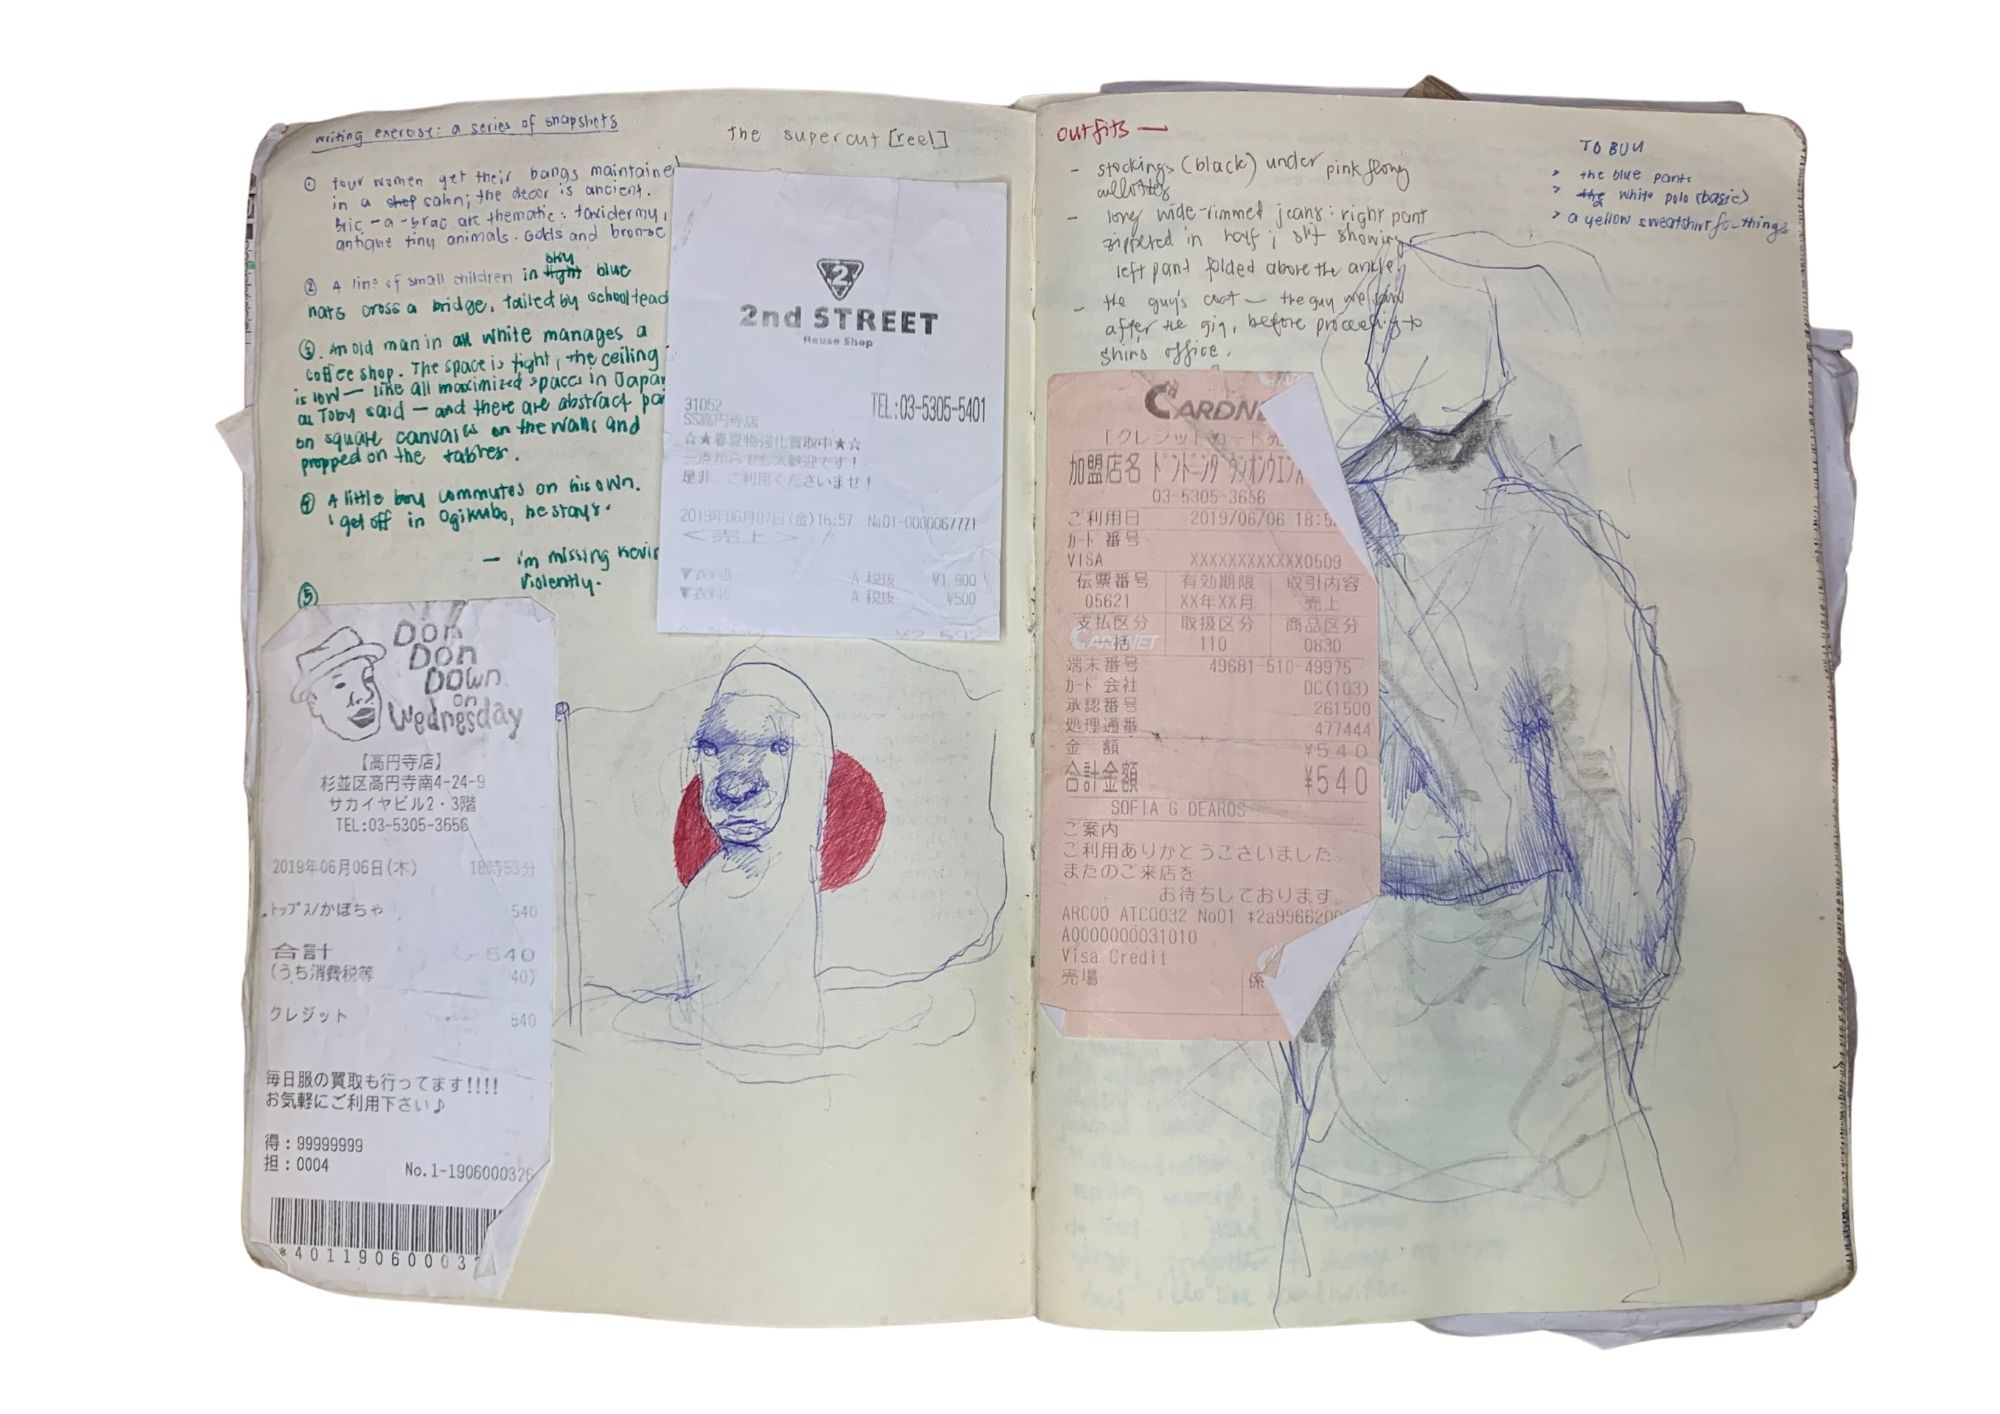 writing exercise: a series of snapshots
the supercut [reel]
① four women get their bangs maintained
in a shop salon; the decor is ancient.
Bric-a-brac are thematic: taxidermy,
antique tiny animals. Golds and bronze
② A line of small children in light sky blue
hats cross a bridge, tailed by schoolteach
③. An old man in all white manages a
coffee shop. The space is tight, the ceiling
is low — like all maximized spaces in Japan
as Toby said — and there are abstract pai
on square canvases on the walls and
propped on the tables.
④ A little boy commutes on his own.
i get off in Ogikubo, he stays.
— i'm missing Kevin
violently.
⑤
2
2nd STREET
Reuse Shop
31052
TEL:03-5305-5401
SS高円寺店
☆★春夏物強化買取中★☆
一点からでも大歓迎です!
是非、ご利用くださいませ!
2019年06月07日(金)16:57 No01-0000067771
<売上>
▼衣料B A 税抜 ¥1,900
▼衣料C A 税抜 ¥500
¥2,592
Don
Don
Down
on
Wednesday
【高円寺店】
杉並区高円寺南4-24-9
サカイヤビル2・3階
TEL:03-5305-3656
2019年06月06日(木) 18時53分
トップス/かぼちゃ 540
合計 540
(うち消費税等 40)
クレジット 540
毎日服の買取も行ってます!!!!
お気軽にご利用下さい♪
得:99999999
担:0004
No.1-1906000326
*4011906000 3
outfits —
- stockings (black) under pink flowy
culottes
- long wide-rimmed jeans: right pant
zippered in half; slit showing
left pant folded above the ankle.
- the guy's coat — the guy we saw
after the gig, before proceeding to
shins office.
TO BUY
> the blue pants
> the a white polo (basic)
> a yellow sweatshirt for things
CARDNE
[クレジットカード売
加盟店名 ドンドンダウンオンウエンズ
03-5305-3656
ご利用日 2019/06/06 18:5
カード番号
VISA XXXXXXXXXXXX0509
伝票番号 有効期限 取引内容
05621 XX年XX月 売上
支払区分 取扱区分 商品区分
一括 110 0830
CARDNET
端末番号 49681-510-49975
カード会社 DC(103)
承認番号 261500
処理通番 477444
金 額 ¥540
合計金額 ¥540
SOFIA G DEAROS
ご案内
ご利用ありがとうございました。
またのご来店を
お待ちしております。
ARC00 ATC0032 No01 *2a9966200
A0000000031010
Visa Credit
売場 係